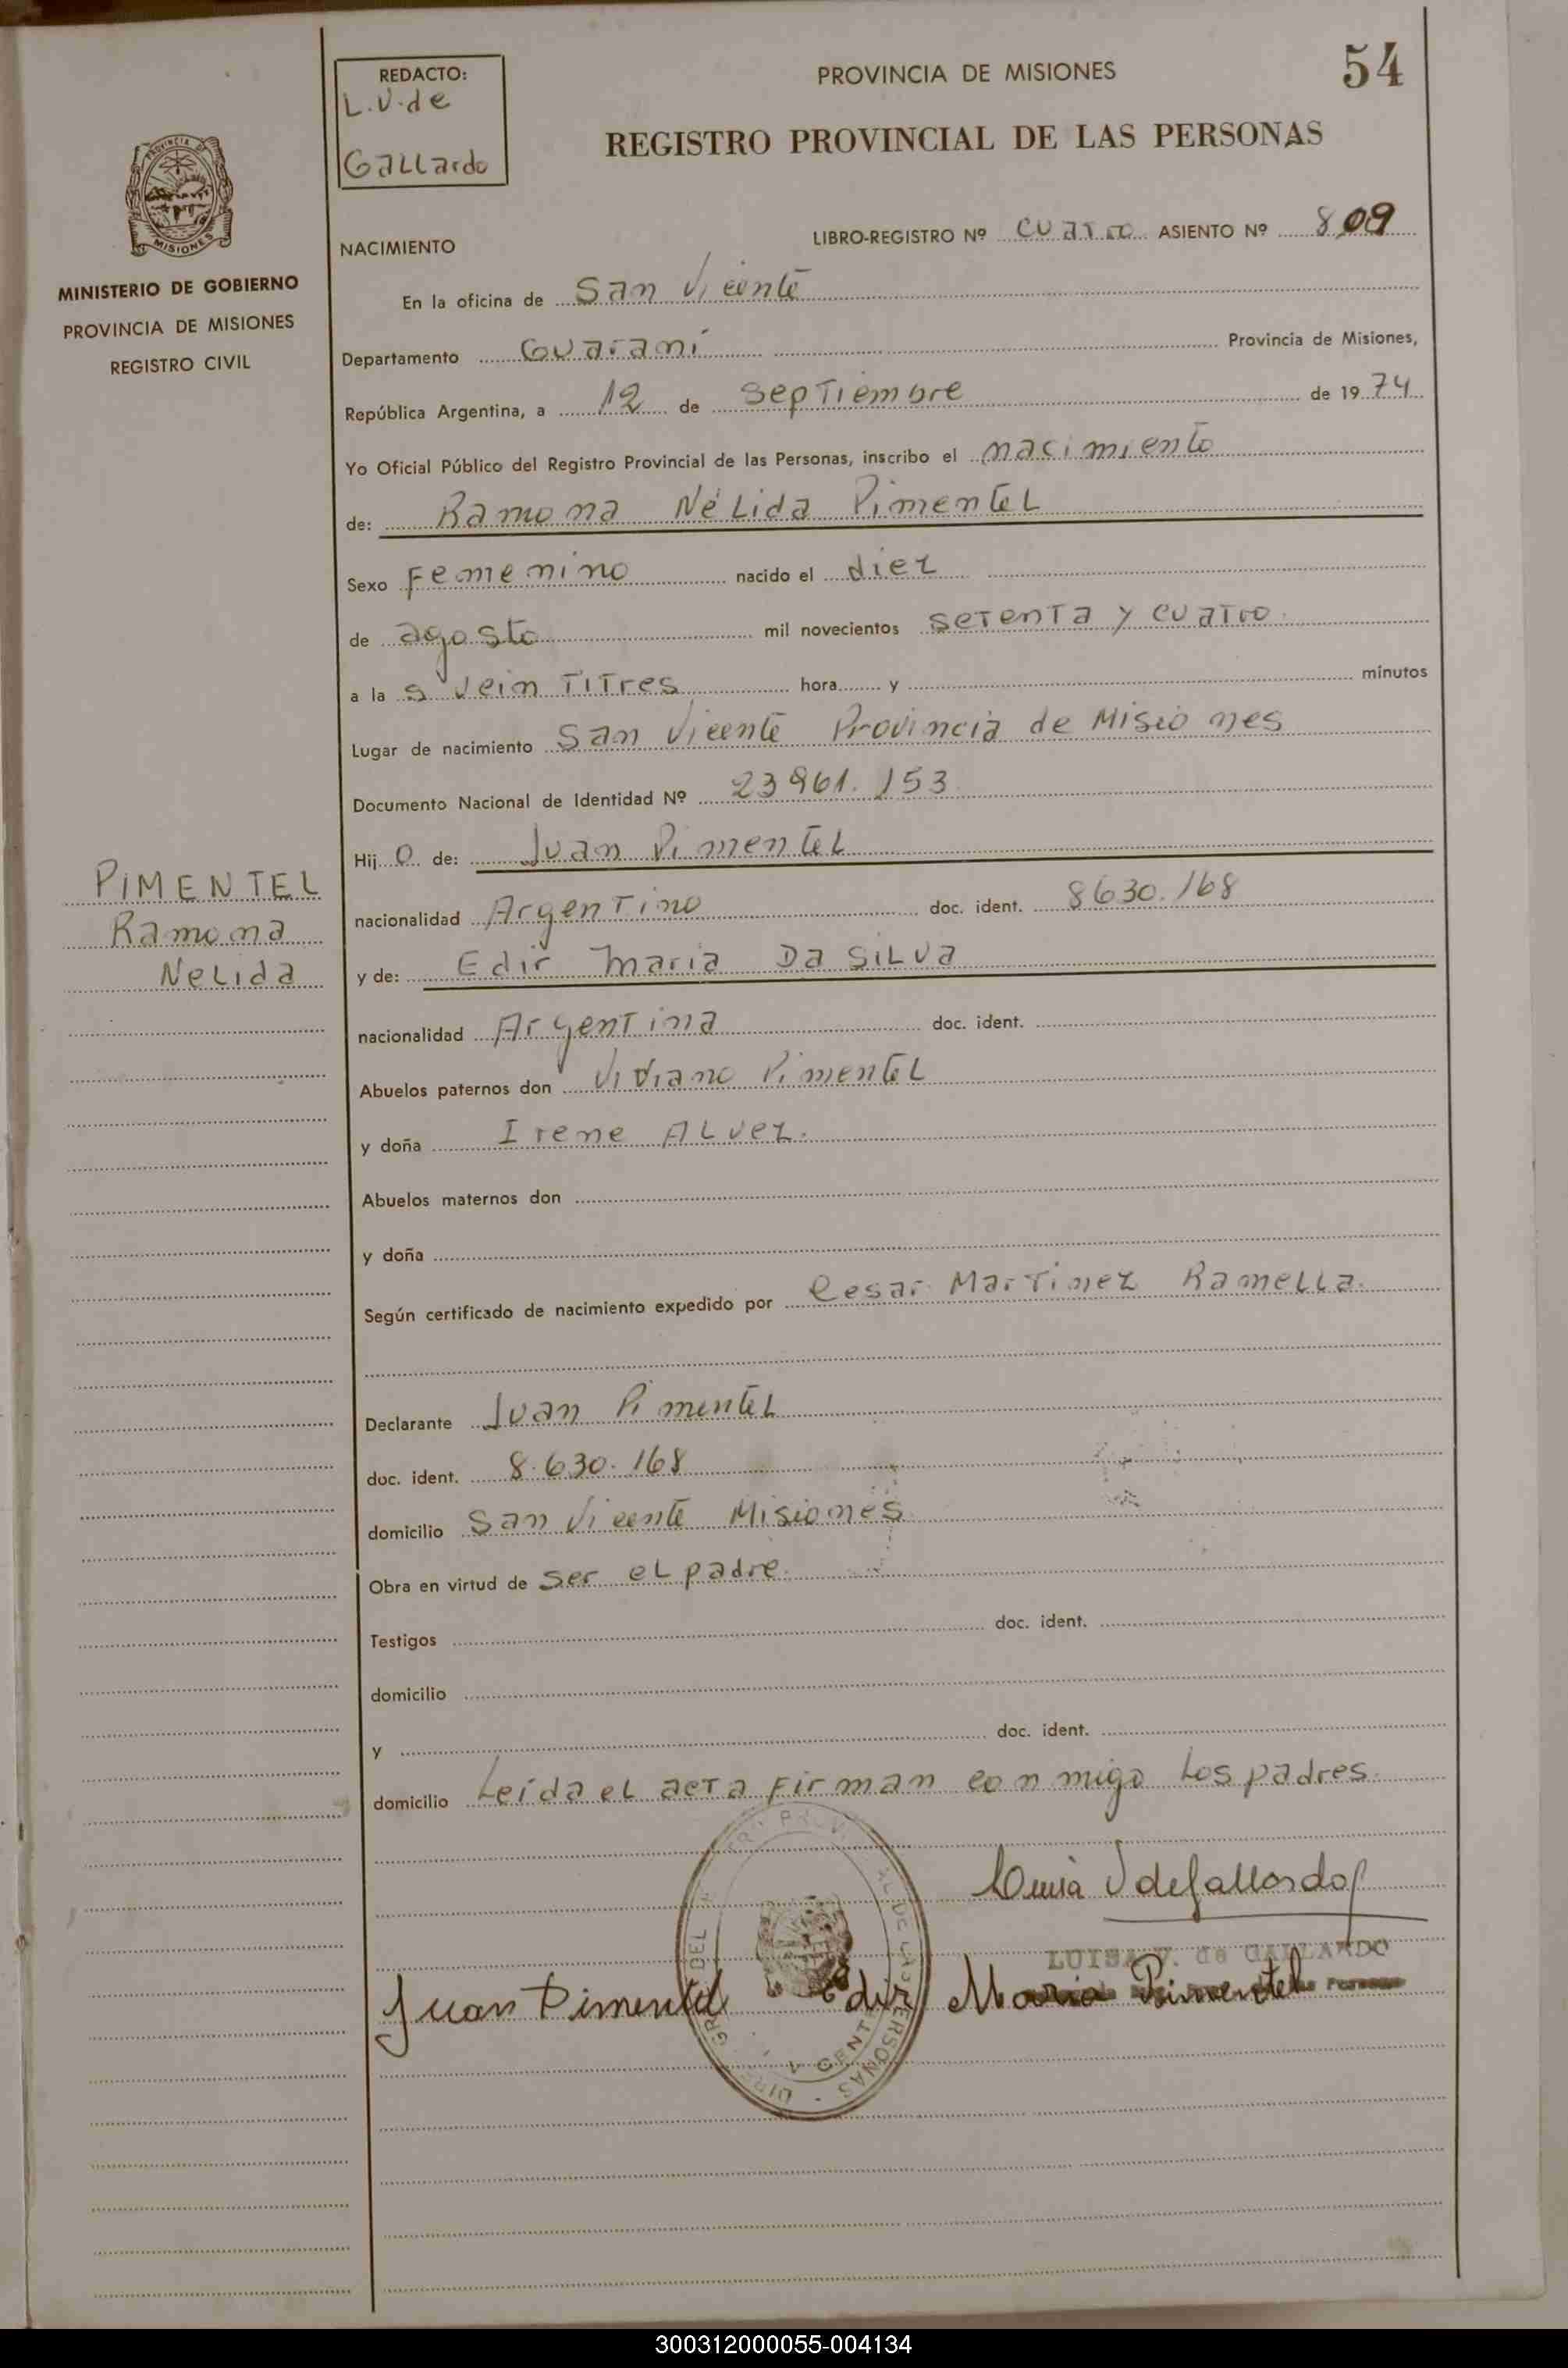 54
PROVINCIA DE MISIONES
REGISTRO PROVINCIAL DE LAS PERSONAS
REDACTO:
L.V. de
Gallardo
MISIONES
MINISTERIO DE GOBIERNO
PROVINCIA DE MISIONES
REGISTRO CIVIL
NACIMIENTO
LIBRO-REGISTRO Nº cuatro ASIENTO Nº 809
En la oficina de San Vicente
Departamento Guaraní Provincia de Misiones,
República Argentina, a 12 de Septiembre de 1974
Yo Oficial Público del Registro Provincial de las Personas, inscribo el nacimiento
de: Ramona Nélida Pimentel
Sexo Femenino nacido el diez
de agosto mil novecientos setenta y cuatro.
a la s veintitres hora y minutos
Lugar de nacimiento San Vicente Provincia de Misiones
Documento Nacional de Identidad Nº 23961.153
Hij o de: Juan Pimentel
nacionalidad Argentino doc. ident. 8630.168
y de: Edir Maria Da Silva
nacionalidad Argentina doc. ident.
Abuelos paternos don Viviano Pimentel
y doña Irene Alvez.
Abuelos maternos don
y doña
Según certificado de nacimiento expedido por Cesar Martinez Ramella.
Declarante Juan Pimentel
doc. ident. 8.630.168
domicilio San Vicente Misiones
Obra en virtud de ser el padre.
Testigos doc. ident.
domicilio
y doc. ident.
domicilio Leída el acta firman conmigo los padres.
PIMENTEL
Ramona
Nelida
Luisa V de Gallardo
LUISA V. de GALLARDO
Juan Pimentel Edir Maria Pimentel
300312000055-004134